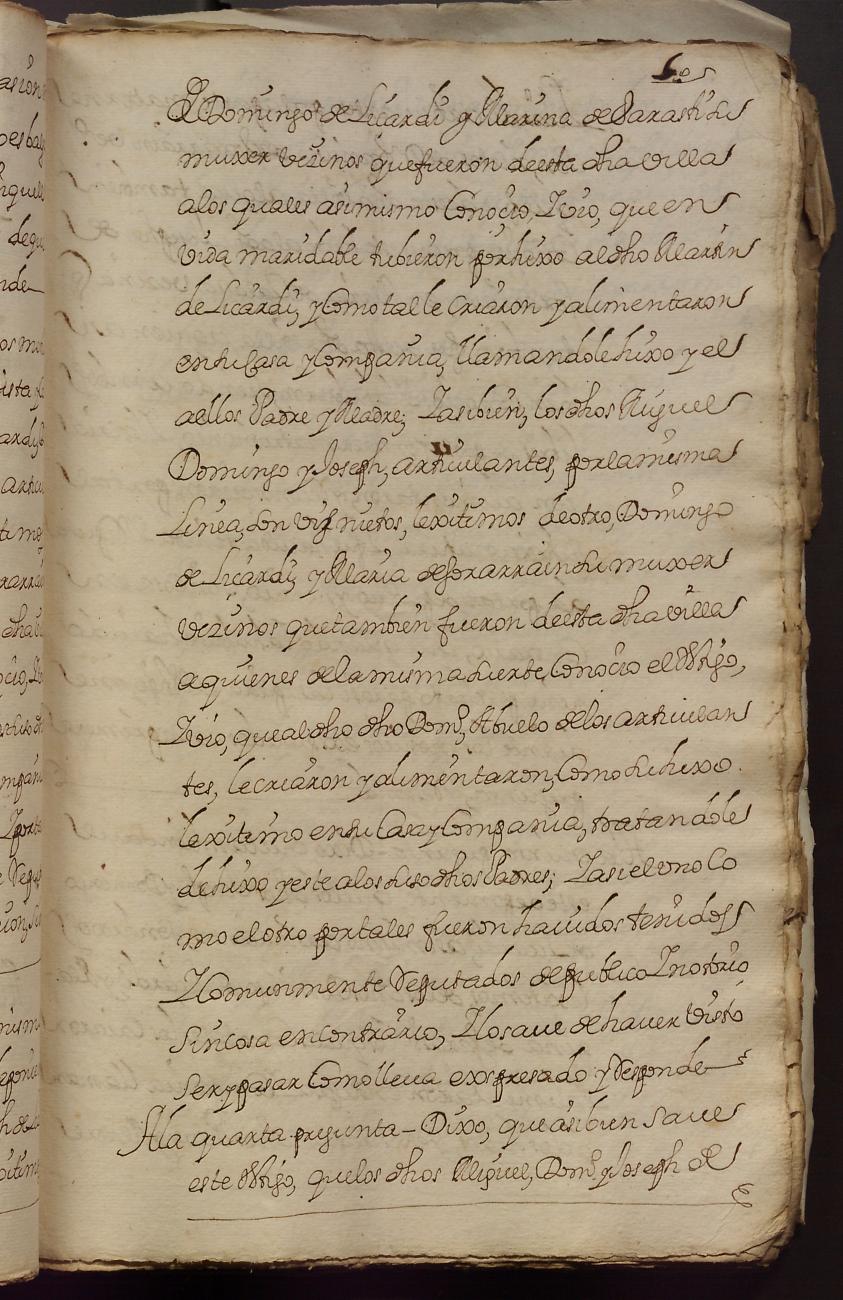 de Domingo de Licardi y Marina de Barasti su
muxer vezinos que fueron de esta dha villa
alos quales asimismo Conocio, Y vio, que en
vida maridable tubieron por hixo al dho Martin
de Licardi, y Como tal le criaron y alimentaron
en su Casa y Compania, llamandole hixo y el
a ellos Padre y Madre; Y asibien, los dhos Miguel
Domingo y Joseph, articulantes, por la misma
Linea, son visnietos, lexitimos de otro, Domingo
de Licardi, y Maria de sorarrain su muxer
vezinos que tambien fueron de esta dha villa
a quienes de la misma suerte, Conocio el testigo,
Y vio, que al dho otro Domo, Abuelo de los articulan
tes, le criaron y alimentaron, Como su hixo
lexitimo en su Casa y Compania, tratandole
de hixo y este a los suso dhos Padres; Y asi el uno Co
mo el otro por tales fueron havidos tenidos
Y Comunmente Reputados de publico Y notorio
sin cosa en contrario, Y lo save de haver visto
ser y pasar Como lleva expresado y Responde
A la quarta pregunta - Dixo, que asibien save
este testigo, que los dhos Miguel, Domo y Joseph de